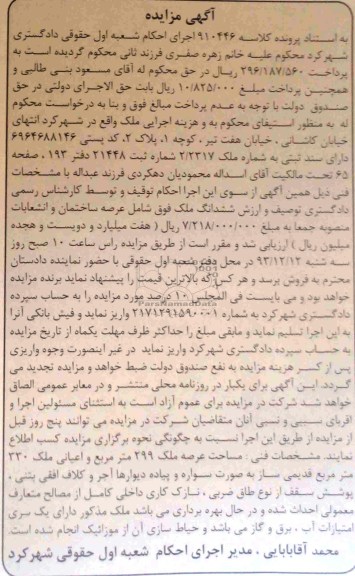 آگهی مزایده
به استناد پرونده کلاسه ۹۱۰۴۴۶ اجرای احکام شعبه اول حقوقی دادگستری
شهرکرد محکوم علیه خانم زهره صفری فرزند ثانی محکوم گردیده است به
پرداخت ۲۹۶/۱۸۷/۵۶۰ ریال در حق محکوم له آقای مسعود بنی طالبی و
همچنین پرداخت مبلغ ۱۰/۸۲۵/۰۰۰ ریال بابت حق الاجرای دولتی در حق
صندوق دولت با توجه به عدم پرداخت مبالغ فوق و بنا به درخواست محکوم
له به منظور استیفای محکوم به و هزینه اجرایی ملک واقع در شهرکرد انتهای
خیابان کاشانی، خیابان هفت تیر، کوچه ۱، پلاک ۲، کد پستی ۶۹۶۴۶۸۸۱۴۶
دارای سند ثبتی به شماره ملک ۲/۲۳۱۷ شماره ثبت ۲۱۴۴۸ دفتر ۱۹۳، صفحه
۶۵ تحت مالکیت آقای اسداله محمودیان دهکردی فرزند عبداله با مشخصات
فنی ذیل همین آگهی از سوی این اجرا احکام توقیف و توسط کارشناس رسمی
دادگستری توصیف و ارزش ششدانگ ملک فوق شامل عرصه ساختمان و انشعابات
منصوبه جمعا به مبلغ ۷/۲۱۸/۰۰۰/۰۰۰ ریال ( هفت میلیارد و دویست و هجده
میلیون ریال ) ارزیابی شد و مقرر است از طریق مزایده راس ساعت ۱۰ صبح روز
سه شنبه ۹۳/۱۲/۱۲ در محل دفتر شعبه اول حقوقی با حضور نماینده دادستان
محترم به فروش برسد و هر کس که بالاترین قیمت را پیشنهاد نماید برنده مزایده
خواهد بود و می بایست فی المجلس ۱۰ درصد مورد مزایده را به حساب سپرده
دادگستری شهرکرد به شماره ۲۱۷۱۲۹۱۵۹۰۰۰۱ واریز نماید و فیش بانکی آنرا
به این اجرا تسلیم نماید و مابقی مبلغ را حداکثر ظرف مهلت یکماه از تاریخ مزایده
به حساب سپرده دادگستری شهرکرد واریز نماید در غیر اینصورت وجوه واریزی
پس از کسر هزینه مزایده به نفع صندوق دولت ضبط خواهد و مزایده تجدید می
گردد. این آگهی برای یکبار در روزنامه محلی منتشر و در معابر عمومی الصاق
خواهد شد شرکت در مزایده برای عموم آزاد است به استثنای مسئولین اجرا و
اقربای سببی و نسبی آنان متقاضیان شرکت در مزایده می توانند پنج روز قبل
از مزایده از طریق این اجرا نسبت به چگونگی نحوه برگزاری مزایده کسب اطلاع
نمایند. مشخصات فنی : مساحت عرصه ملک ۲۹۹ متر مربع و اعیانی ملک ۲۳۰
متر مربع قدیمی ساز به صورت سواره و پیاده دیوارها آجر و کلاف افقی بتنی،
پوشش سقف از نوع طاق ضربی، نازک کاری داخلی کامل از مصالح متعارف
معمولی احداث شده و در حال بهره برداری می باشد ملک مذکور دارای یک سری
امتیازات آب، برق و گاز می باشد و حیاط سازی آن از موزائیک انجام شده است.
محمد آقابابایی، مدیر اجرای احکام شعبه اول حقوقی شهرکرد